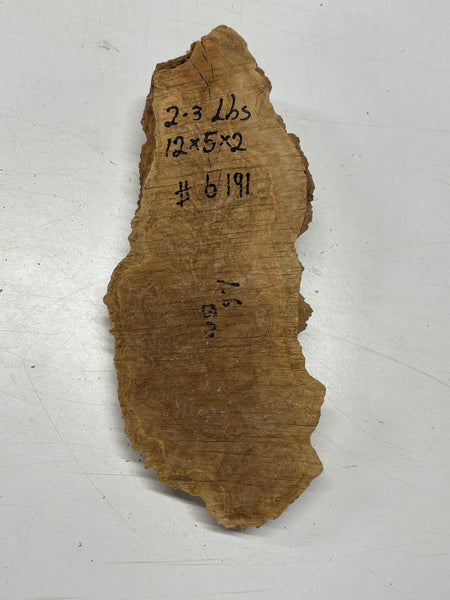 2-3 Lbs
12x5x2
# 6191